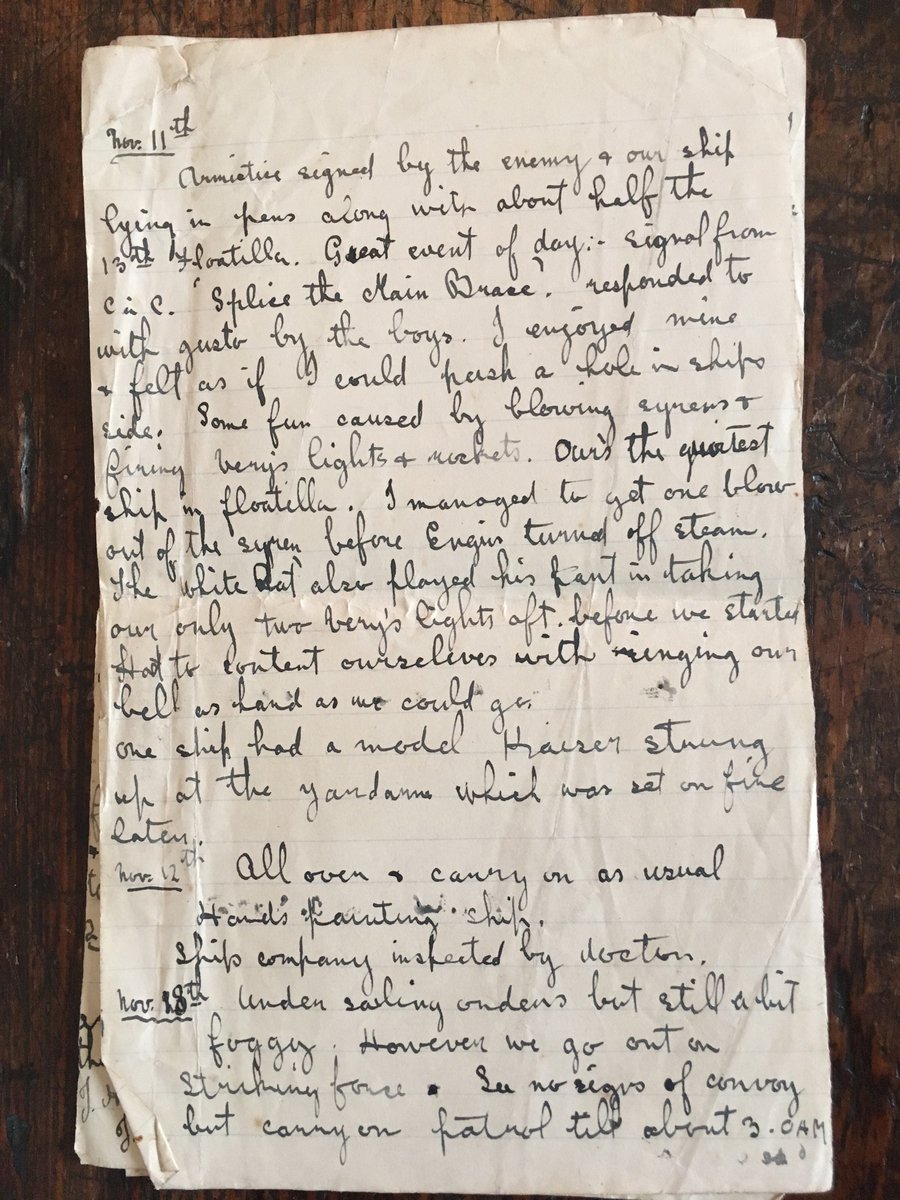 Nov. 11th
Armistice signed by the enemy & our ship
lying in pens along with about half the
13th Floatilla. Great event of day:- signal from
C in C. "Splice the Main Brace". responded to
with gusto by the boys. I enjoyed mine
& felt as if I could push a hole in ships
side. Some fun caused by blowing syrens &
firing Very's lights & rockets. Our's the quietest
ship in floatilla. I managed to get one blow
out of the syren before Engin turned off steam.
The white Rat also played his part in taking
our only two Very's lights aft. before we started
Had to content ourselves with ringing our
bell as hard as we could go.
one ship had a model Kaiser strung
up at the yardarm which was set on fire
later.
Nov. 12th All over & carry on as usual
Hands painting ship.
Ships company inspected by doctor.
Nov. 18th Under sailing orders but still a bit
foggy. However we go out on
striking force. See no signs of convoy
but carry on patrol till about 3.0AM